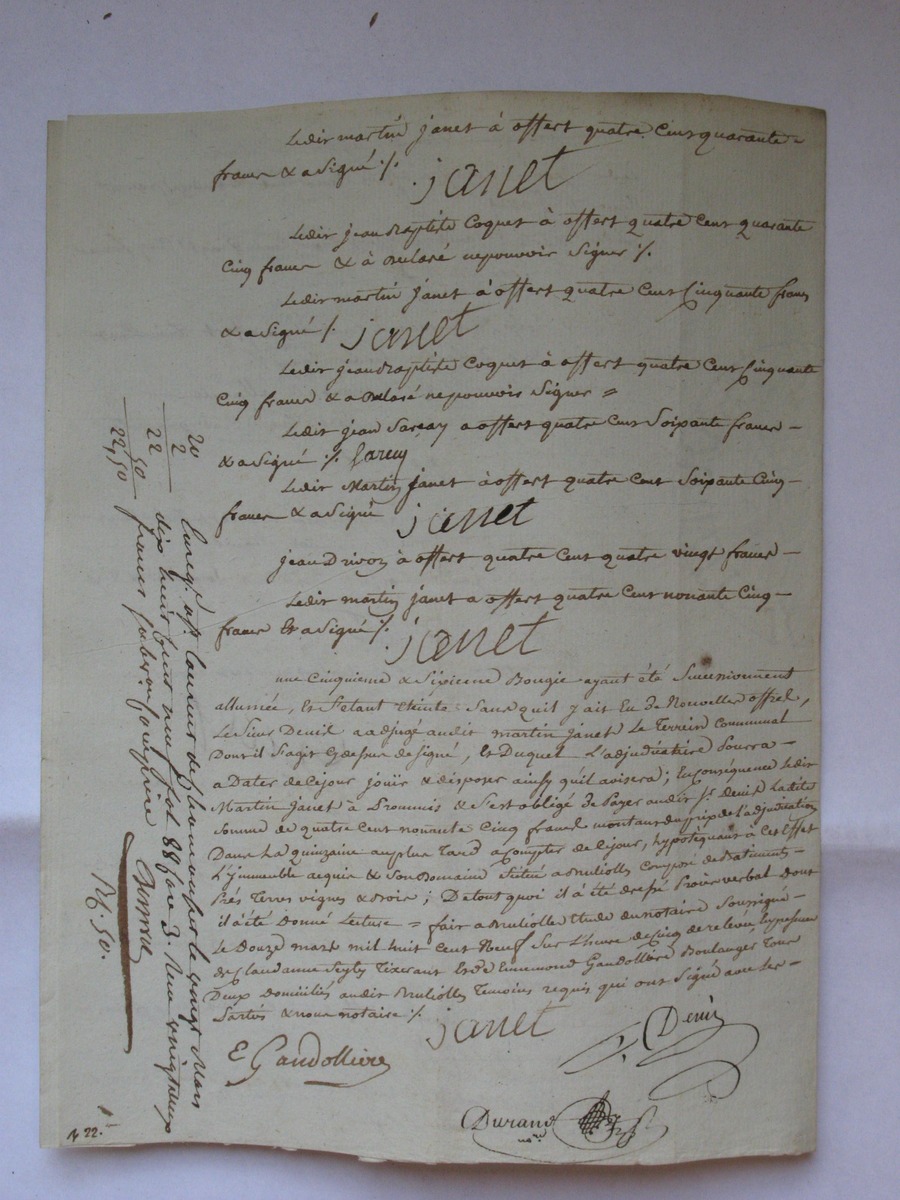 Ledit martin janet à offert quatre Cent quarante =
francs & a Signé ./.
janet
Ledit jean Baptiste Coquet à offert quatre Cent quarante
Cinq francs & à Déclaré ne pouvoir Signer ./.
Ledit martin janet à offert quatre Cent Cinquante francs
& a Signé ./. janet
Ledit jean Baptiste Coquet à offert quatre Cent Cinquante
Cinq francs & a Déclaré ne pouvoir Signer =
Ledit jean Sarcey a offert quatre Cent Soixante francs -
& a Signé ./. Sarcey
Ledit Martin janet à offert quatre Cent Soixante Cinq -
francs & a Signé janet
jean Drivon à offert quatre Cent quatre vingt francs -
Ledit martin janet a offert quatre Cent nonante Cinq -
francs Et a Signé ./. janet
une Cinquieme & Sixieme Bougie ayant été Successivement
allumée, Et S'etant Eteinte Sans quil y ait Eu de Nouvelles offres,
Le Sieur Denis a adjugé audit martin janet Le Terrein Communal
Dont il S'agit Cy dessus designé, Et Duquel L'adjudicataire Pourra -
a Dater de Ce jour jouïr & disposer ainsy quil avisera ; En Conséquence Ledit
Martin Janet à Prommis & S'est obligé de Payer audit Sr. Denis Ladite
Somme de quatre Cent nonante Cinq francs montant du prix de l'adjudication
Dans La quinzaine au plus Tard a Compter de Ce jour, hypotéquant à Cet Effet
L'jmmeuble acquis & Son Domaine Situé a Bruliolles Composé de Batiments -
Prés Terres vignes & Bois ; De tout quoi il à été dressé Procès verbal dont
il à été Donné Lecture = fait a Brulliolle Etude du notaire Soussigné -
Le Douze mars mil huit Cent Neuf Sur L'heure de Cinq de relevée En présence
de Claudanne Tixerant Et de Ennemond Gandollière Boulanger Tous
Deux Domiciliés audit Brulliolles Temoins requis qui ont Signé avec Les -
Parties & nous notaire ./. janet
E Gandolliere
Denis
Durand
no.re
20
2
22
50
22,50
Enreg. à St. Laurent de Chamousset le vingt Mars
dix huit Cent neuf fol 88 Case 3. Reçu vingt deux
francs Subvention Comprise
Rf. 50.
22.